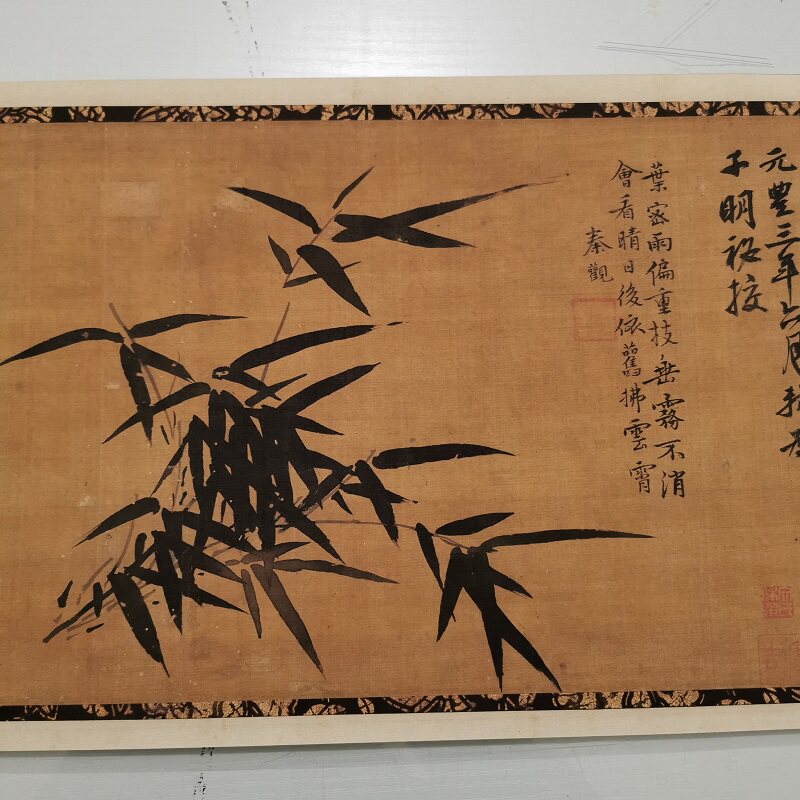 元豐三年六月軾為
子明秘校
葉密雨偏重技垂霧不消
會看晴日後依舊拂雲霄
秦觀